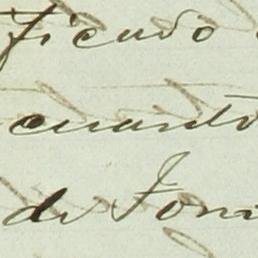 ficado
cuanto
de Tom